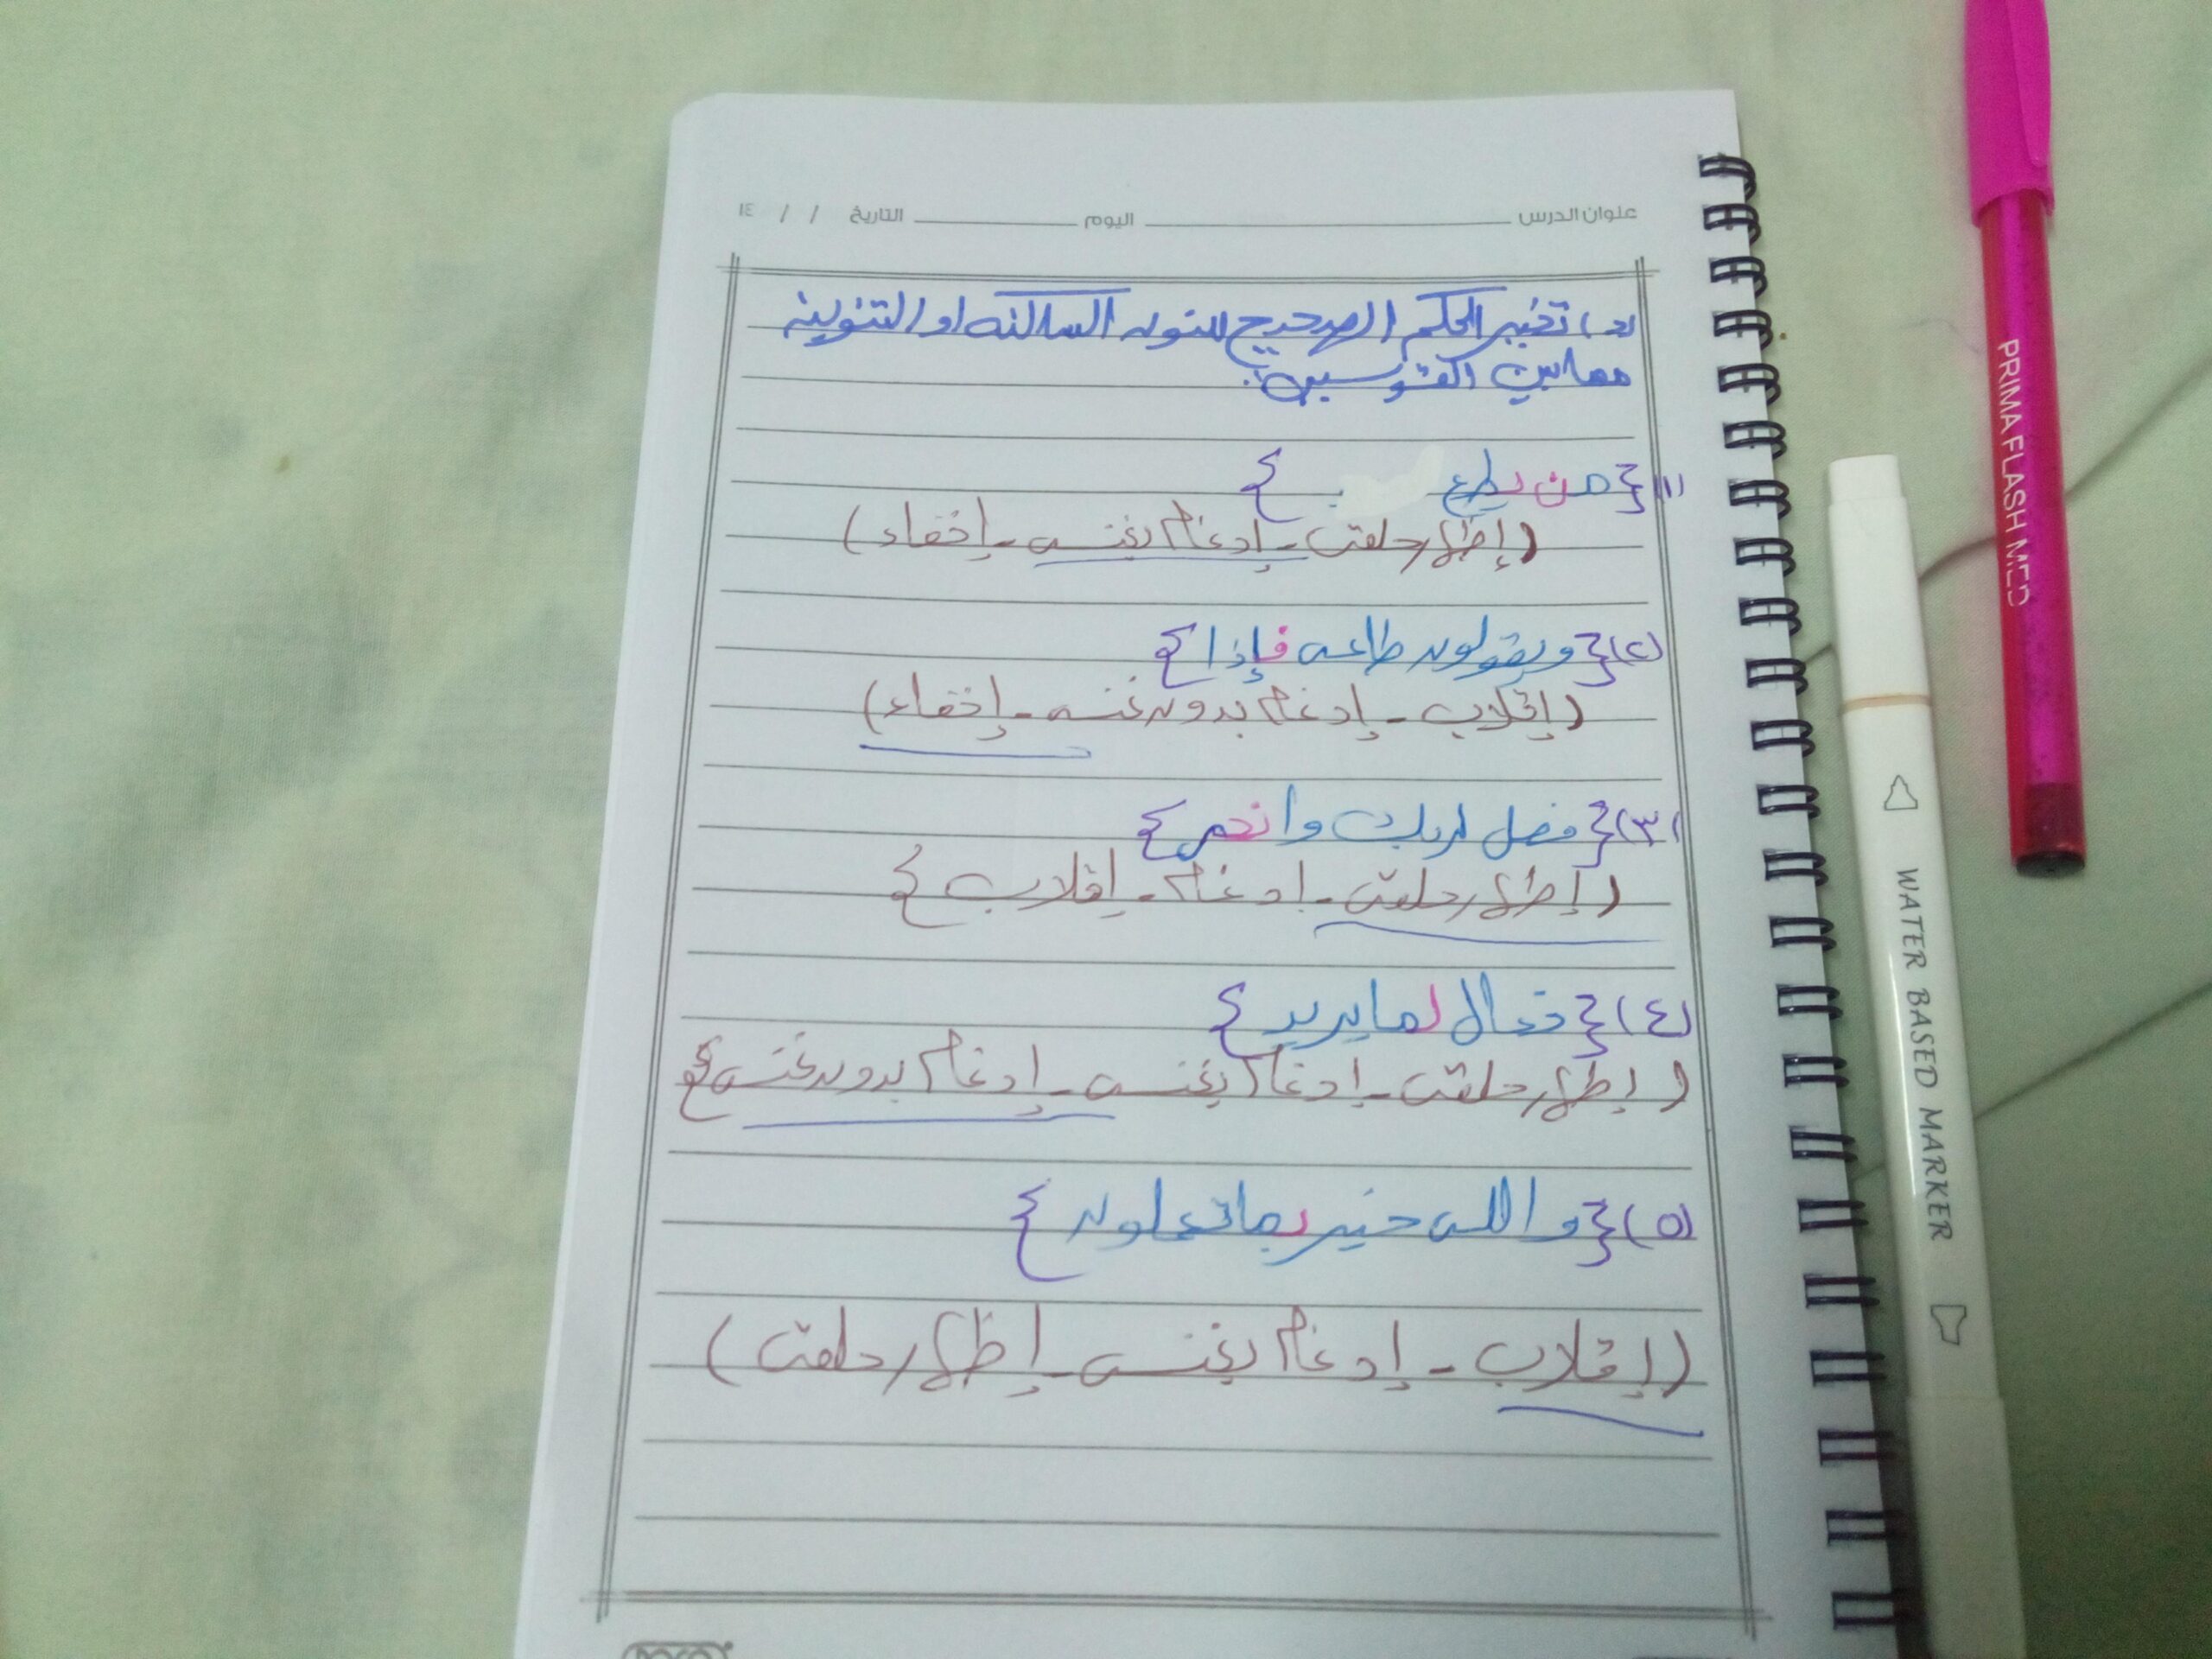 علوان الدرس اليوم التاريخ / / ١٤
د) تخير الحكم الصحيح للنون الساكنه او التنوين
مما بين القوسين:
١) {من يطع }
(إظهار حلقى - إدغام بغنه - إخفاء)
(٢) {ويقولون طاعه فإذا}
(إقلاب - إدغام بدون غنه - إخفاء)
(٣) {فصل لربك وانحر}
(إظهار حلقى - إدغام - إقلاب}
(٤) {فعال لما يريد}
(إظهار حلقى - إدغام بغنه - إدغام بدون غنه}
(٥) {والله خبير بما تعملون}
(إقلاب - إدغام بغنه - إظهار حلقى)
PRIMA FLASH MED
WATER BASED MARKER